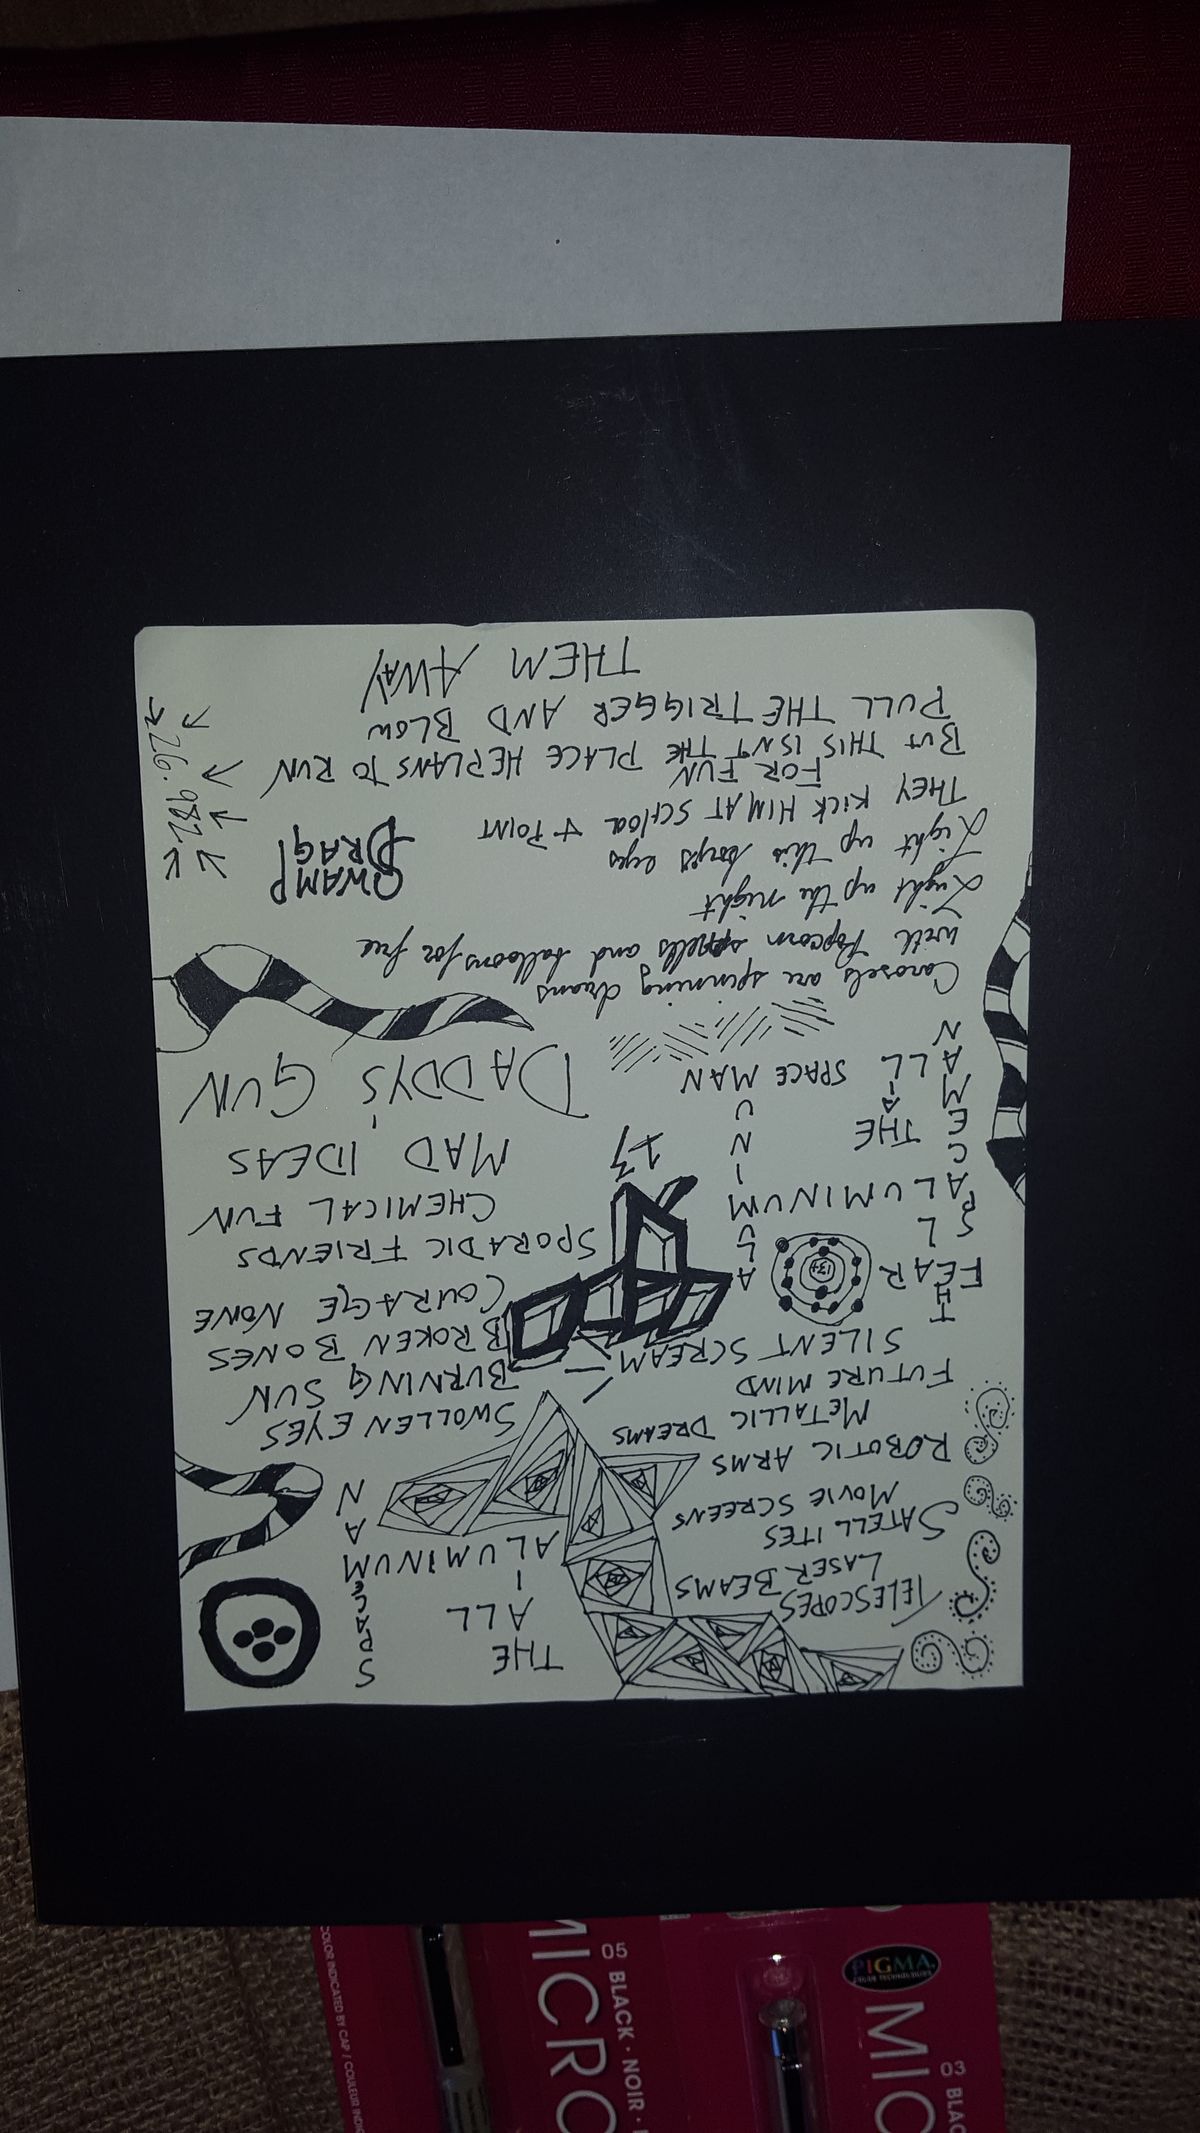 TELESCOPES
LASER BEAMS
SATELLITES
MOVIE SCREENS
ROBOTIC ARMS
METALLIC DREAMS
FUTURE MIND
SILENT SCREAM
THE
ALL
ALUMINUM
SPACEMAN
SWOLLEN EYES
BURNING SUN
BROKEN BONES
COURAGE NONE
SPORADIC FRIENDS
CHEMICAL FUN
MAD IDEAS
DADDY'S GUN
FEAR
THE
ALUMINUM
ALL
SPACE MAN
13+
17
Carosels are spinning dreams
with Popcorn smells and balloons for free
Light up the night
Light up this boys eyes
THEY KICK HIM AT SCHOOL + POINT
FOR FUN
BUT THIS ISN'T THE PLACE HE PLANS TO RUN
PULL THE TRIGGER AND BLOW
THEM AWAY
SWAMP
DRAG!
26.982
05 BLACK · NOIR
MICRO
COLOR INDICATED BY CAP / COULEUR
PIGMA
03
MIC